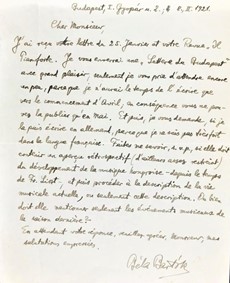 Budapest, I. Gyopár u. 2. II. 1921.
Cher Monsieur,
J'ai reçu votre lettre du 25. Janvier et votre Revue, Il
Pianoforte. Je vous enverrai une „Lettera da Budapest"
avec grand plaisir, seulement je vous prie d'attendre encore
un peu, parceque je n'aurai le temps de l'écrire que
vers le commencement d'Avril, en conséquence vous ne pouvez
la publier qu'en Mai. Et puis, je vous demande, si je
le puis écrire en allemand, parceque je ne suis pas très fort
dans la langue française. Faites-moi savoir, s. v. p., si elle doit
contenir un aperçu rétrospectif (d'ailleurs assez restreint)
du développement de la musique hongroise depuis le temps
de Fr. Liszt, et puis procéder à la description de la vie
musicale actuelle, ou seulement cette description. Ou bien
doit elle mentionner seulement les événements musicaux de
la saison dernière?
En attendant votre réponse, veuillez agréer, Monsieur, mes
salutations empressées,
Béla Bartók